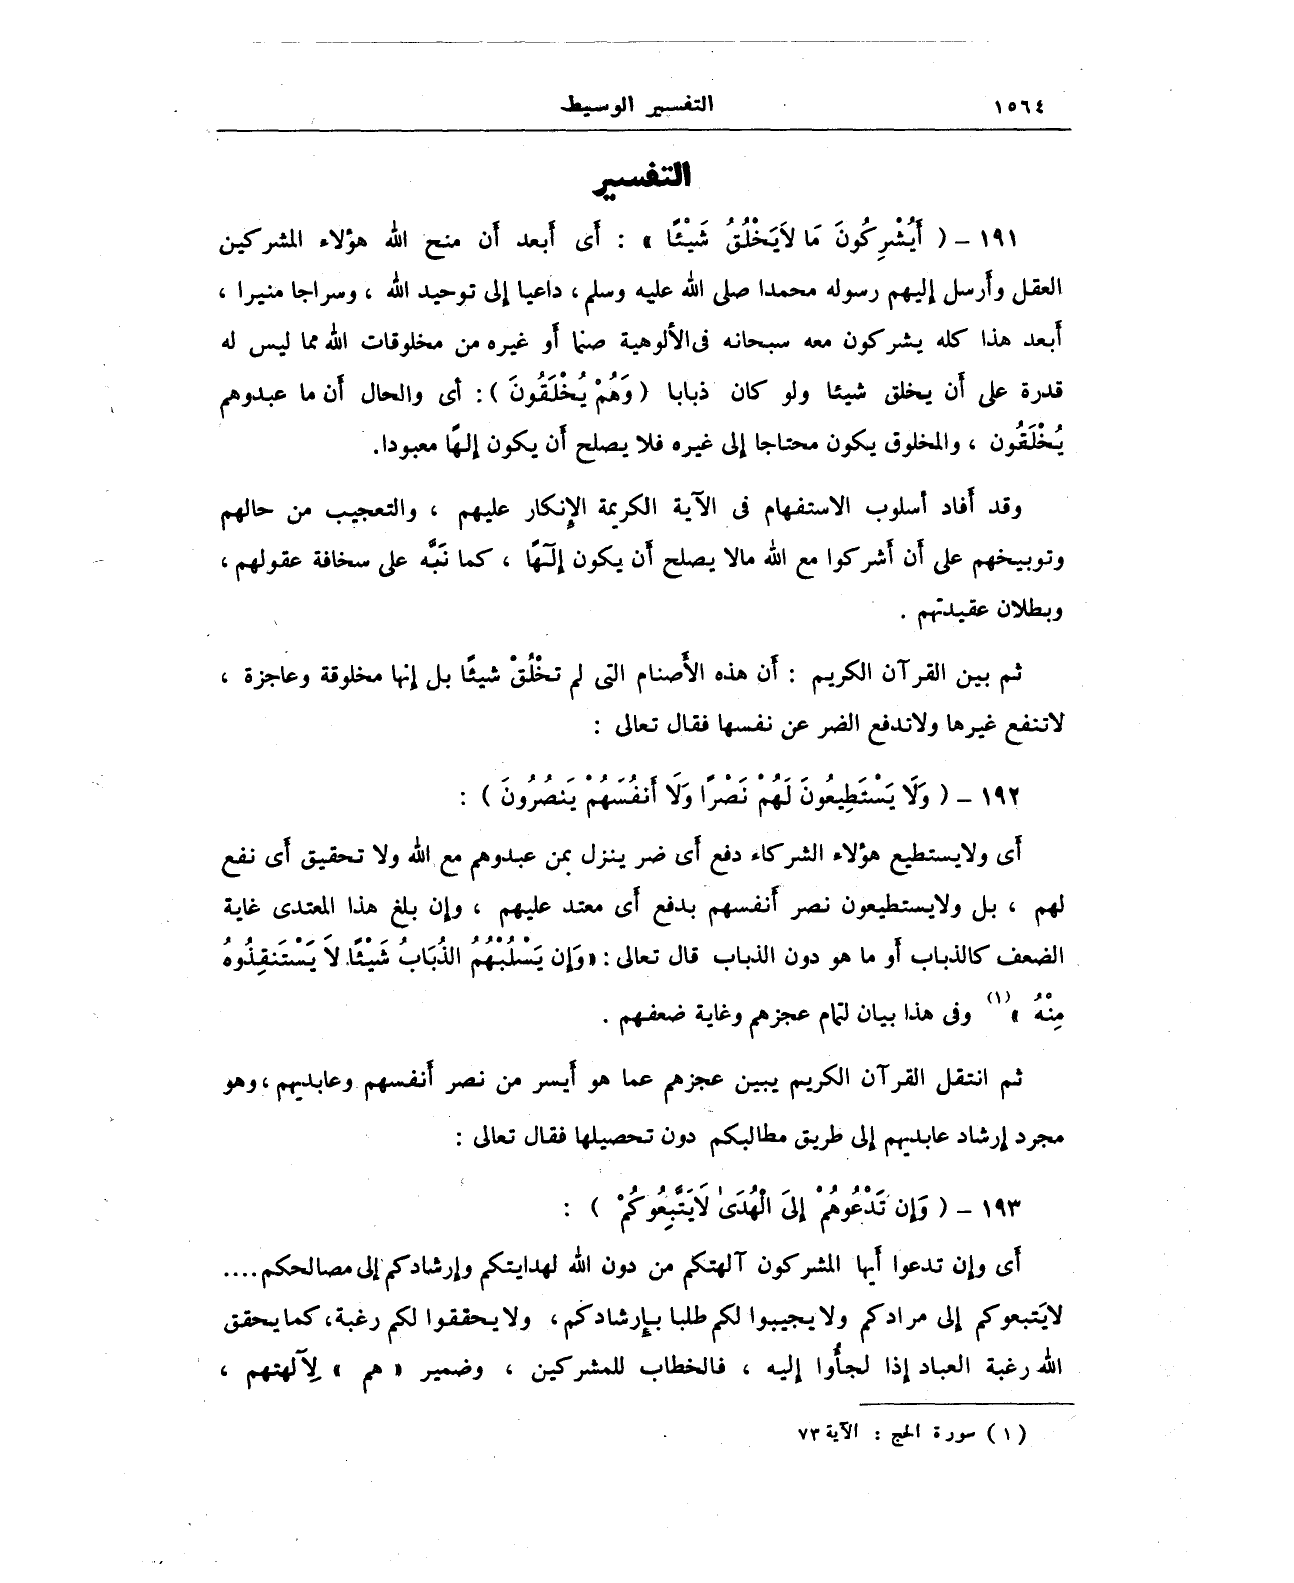 ١٥٦٤ التفسير الوسيط
التفسير
١٩١ – ( أَيُشْرِكُونَ مَا لاَيَخْلُقُ شَيْئًا » : أى أبعد أن منح الله هؤلاء المشركين
العقل وأرسل إليهم رسوله محمدا صلى الله عليه وسلم ، داعيا إلى توحيد الله ، وسراجا منيرا ،
أبعد هذا كله يشركون معه سبحانه فى الألوهية صنما أو غيره من مخلوقات الله مما ليس له
قدرة على أن يخلق شيئا ولو كان ذبابا ( وَهُمْ يُخْلَقُونَ ) : أى والحال أن ما عبدوهم
يُخْلَقُون ، والمخلوق يكون محتاجا إلى غيره فلا يصلح أن يكون إلهًا معبودا.
وقد أفاد أسلوب الاستفهام فى الآية الكريمة الإنكار عليهم ، والتعجيب من حالهم
وتوبيخهم على أن أشركوا مع الله مالا يصلح أن يكون إلَهًا ، كما نَبَّه على سخافة عقولهم ،
وبطلان عقيدتهم .
ثم بين القرآن الكريم : أن هذه الأصنام التى لم تخْلُقْ شيئًا بل إنها مخلوقة وعاجزة ،
لاتنفع غيرها ولاتدفع الضر عن نفسها فقال تعالى :
١٩٢ – ( وَلَا يَسْتَطِيعُونَ لَهُمْ نَصْرًا وَلَا أَنفُسَهُمْ يَنصُرُونَ ) :
أى ولايستطيع هؤلاء الشركاء دفع أى ضر ينزل بمن عبدوهم مع الله ولا تحقيق أى نفع
لهم ، بل ولايستطيعون نصر أنفسهم بدفع أى معتد عليهم ، وإن بلغ هذا المعتدى غاية
الضعف كالذباب أو ما هو دون الذباب قال تعالى : « وَإِن يَسْلُبْهُمُ الذُّبَابُ شَيْئًا لاَ يَسْتَنقِذُوهُ
مِنْهُ » (١) وفى هذا بيان لتمام عجزهم وغاية ضعفهم .
ثم انتقل القرآن الكريم يبين عجزهم عما هو أيسر من نصر أنفسهم وعابديهم ، وهو
مجرد إرشاد عابديهم إلى طريق مطالبكم دون تحصيلها فقال تعالى :
١٩٣ – ( وَإِن تَدْعُوهُمْ إِلَى الْهُدَىٰ لَايَتَّبِعُوكُمْ ) :
أى وإن تدعوا أيها المشركون آلهتكم من دون الله لهدايتكم وإرشادكم إلى مصالحكم ....
لايَتبعوكم إلى مرادكم ولا يجيبوا لكم طلبا بإرشادكم ، ولا يحققوا لكم رغبة ، كما يحقق
الله رغبة العباد إذا لجأُوا إليه ، فالخطاب للمشركين ، وضمير « هم » لِآلهتهم ،
( ١ ) سورة الحج : الآية ٧٣